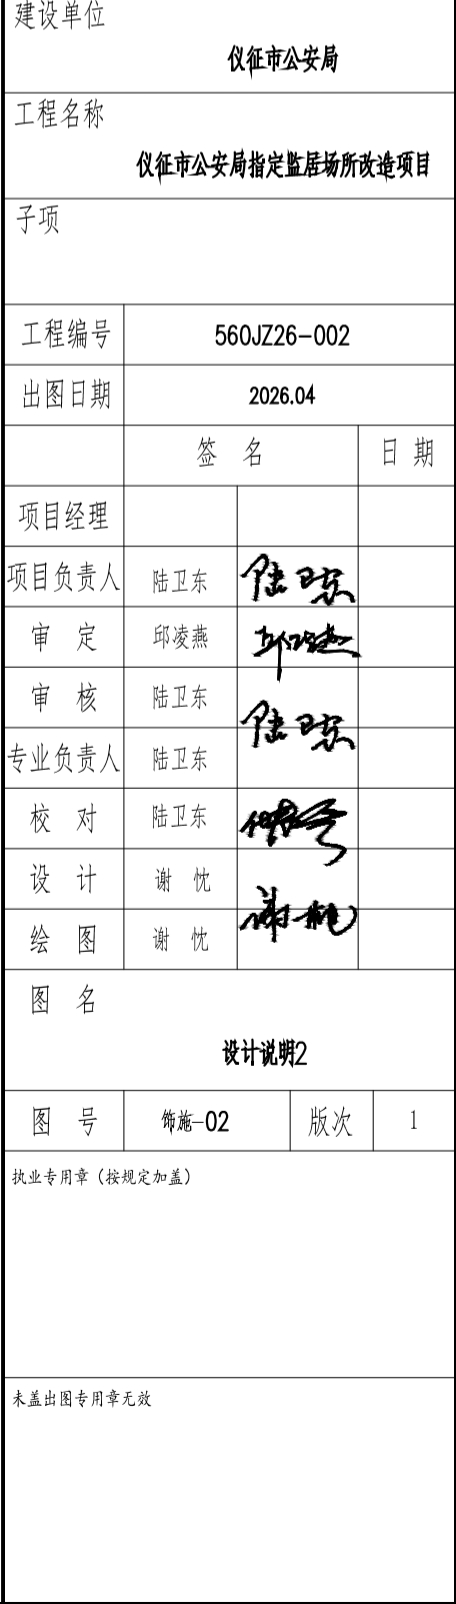 建设单位
仪征市公安局
工程名称
仪征市公安局指定监居场所改造项目
子项
工程编号 560JZ26-002
出图日期 2026.04
签 名 日 期
项目经理
项目负责人 陆卫东 陆卫东
审 定 邱凌燕
审 核 陆卫东 陆卫东
专业负责人 陆卫东
校 对 陆卫东
设 计 谢 忱
绘 图 谢 忱
图 名
设计说明2
图 号 饰施-02 版次 1
执业专用章（按规定加盖）
未盖出图专用章无效